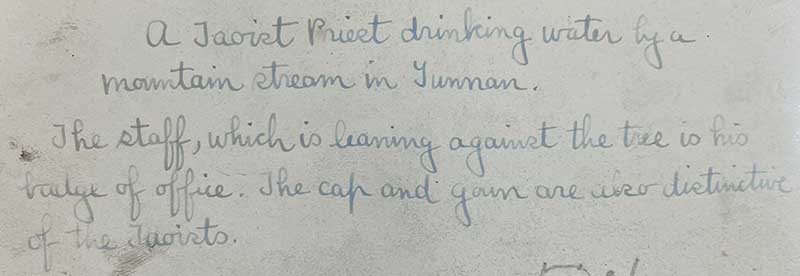 A Taoist Priest drinking water by a
mountain stream in Yunnan.
The staff, which is leaning against the tree is his
badge of office. The cap and gown are also distinctive
of the Taoists.